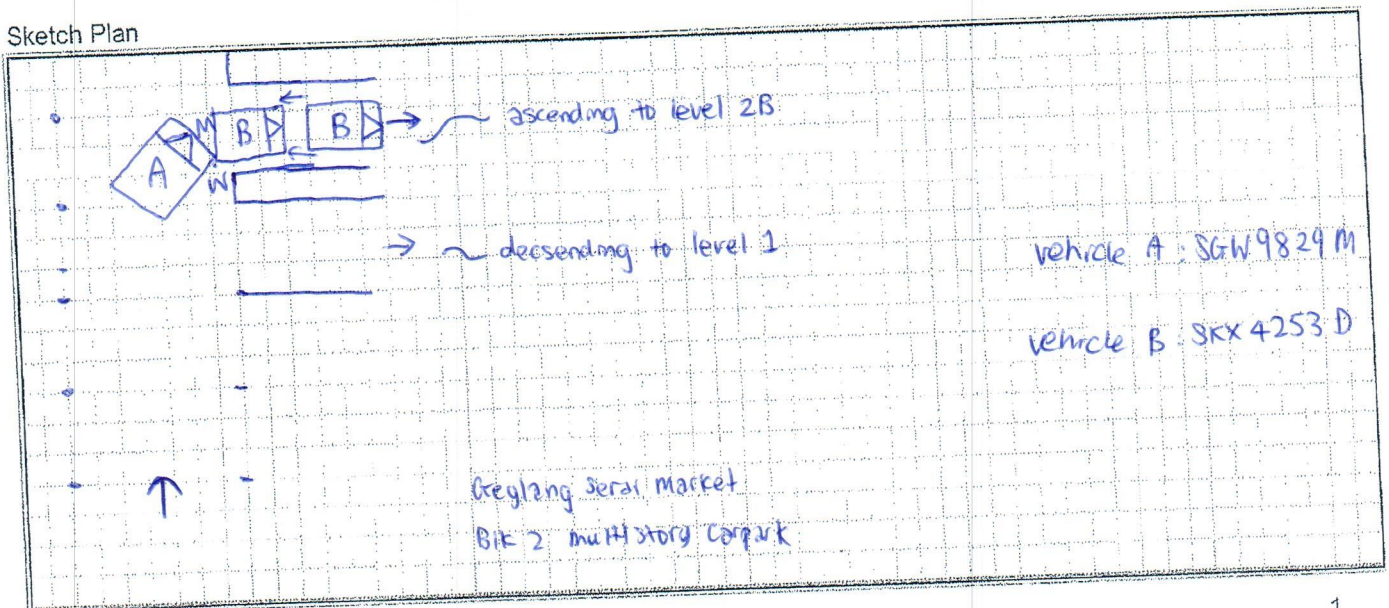 Sketch Plan
ascending to level 2B
B
B
A
decsending to level 1
vehicle A : SGW 9829 M
vehicle B : SKX 4253 D
Geylang Serai Market
Blk 2 multi storg Carpark
1